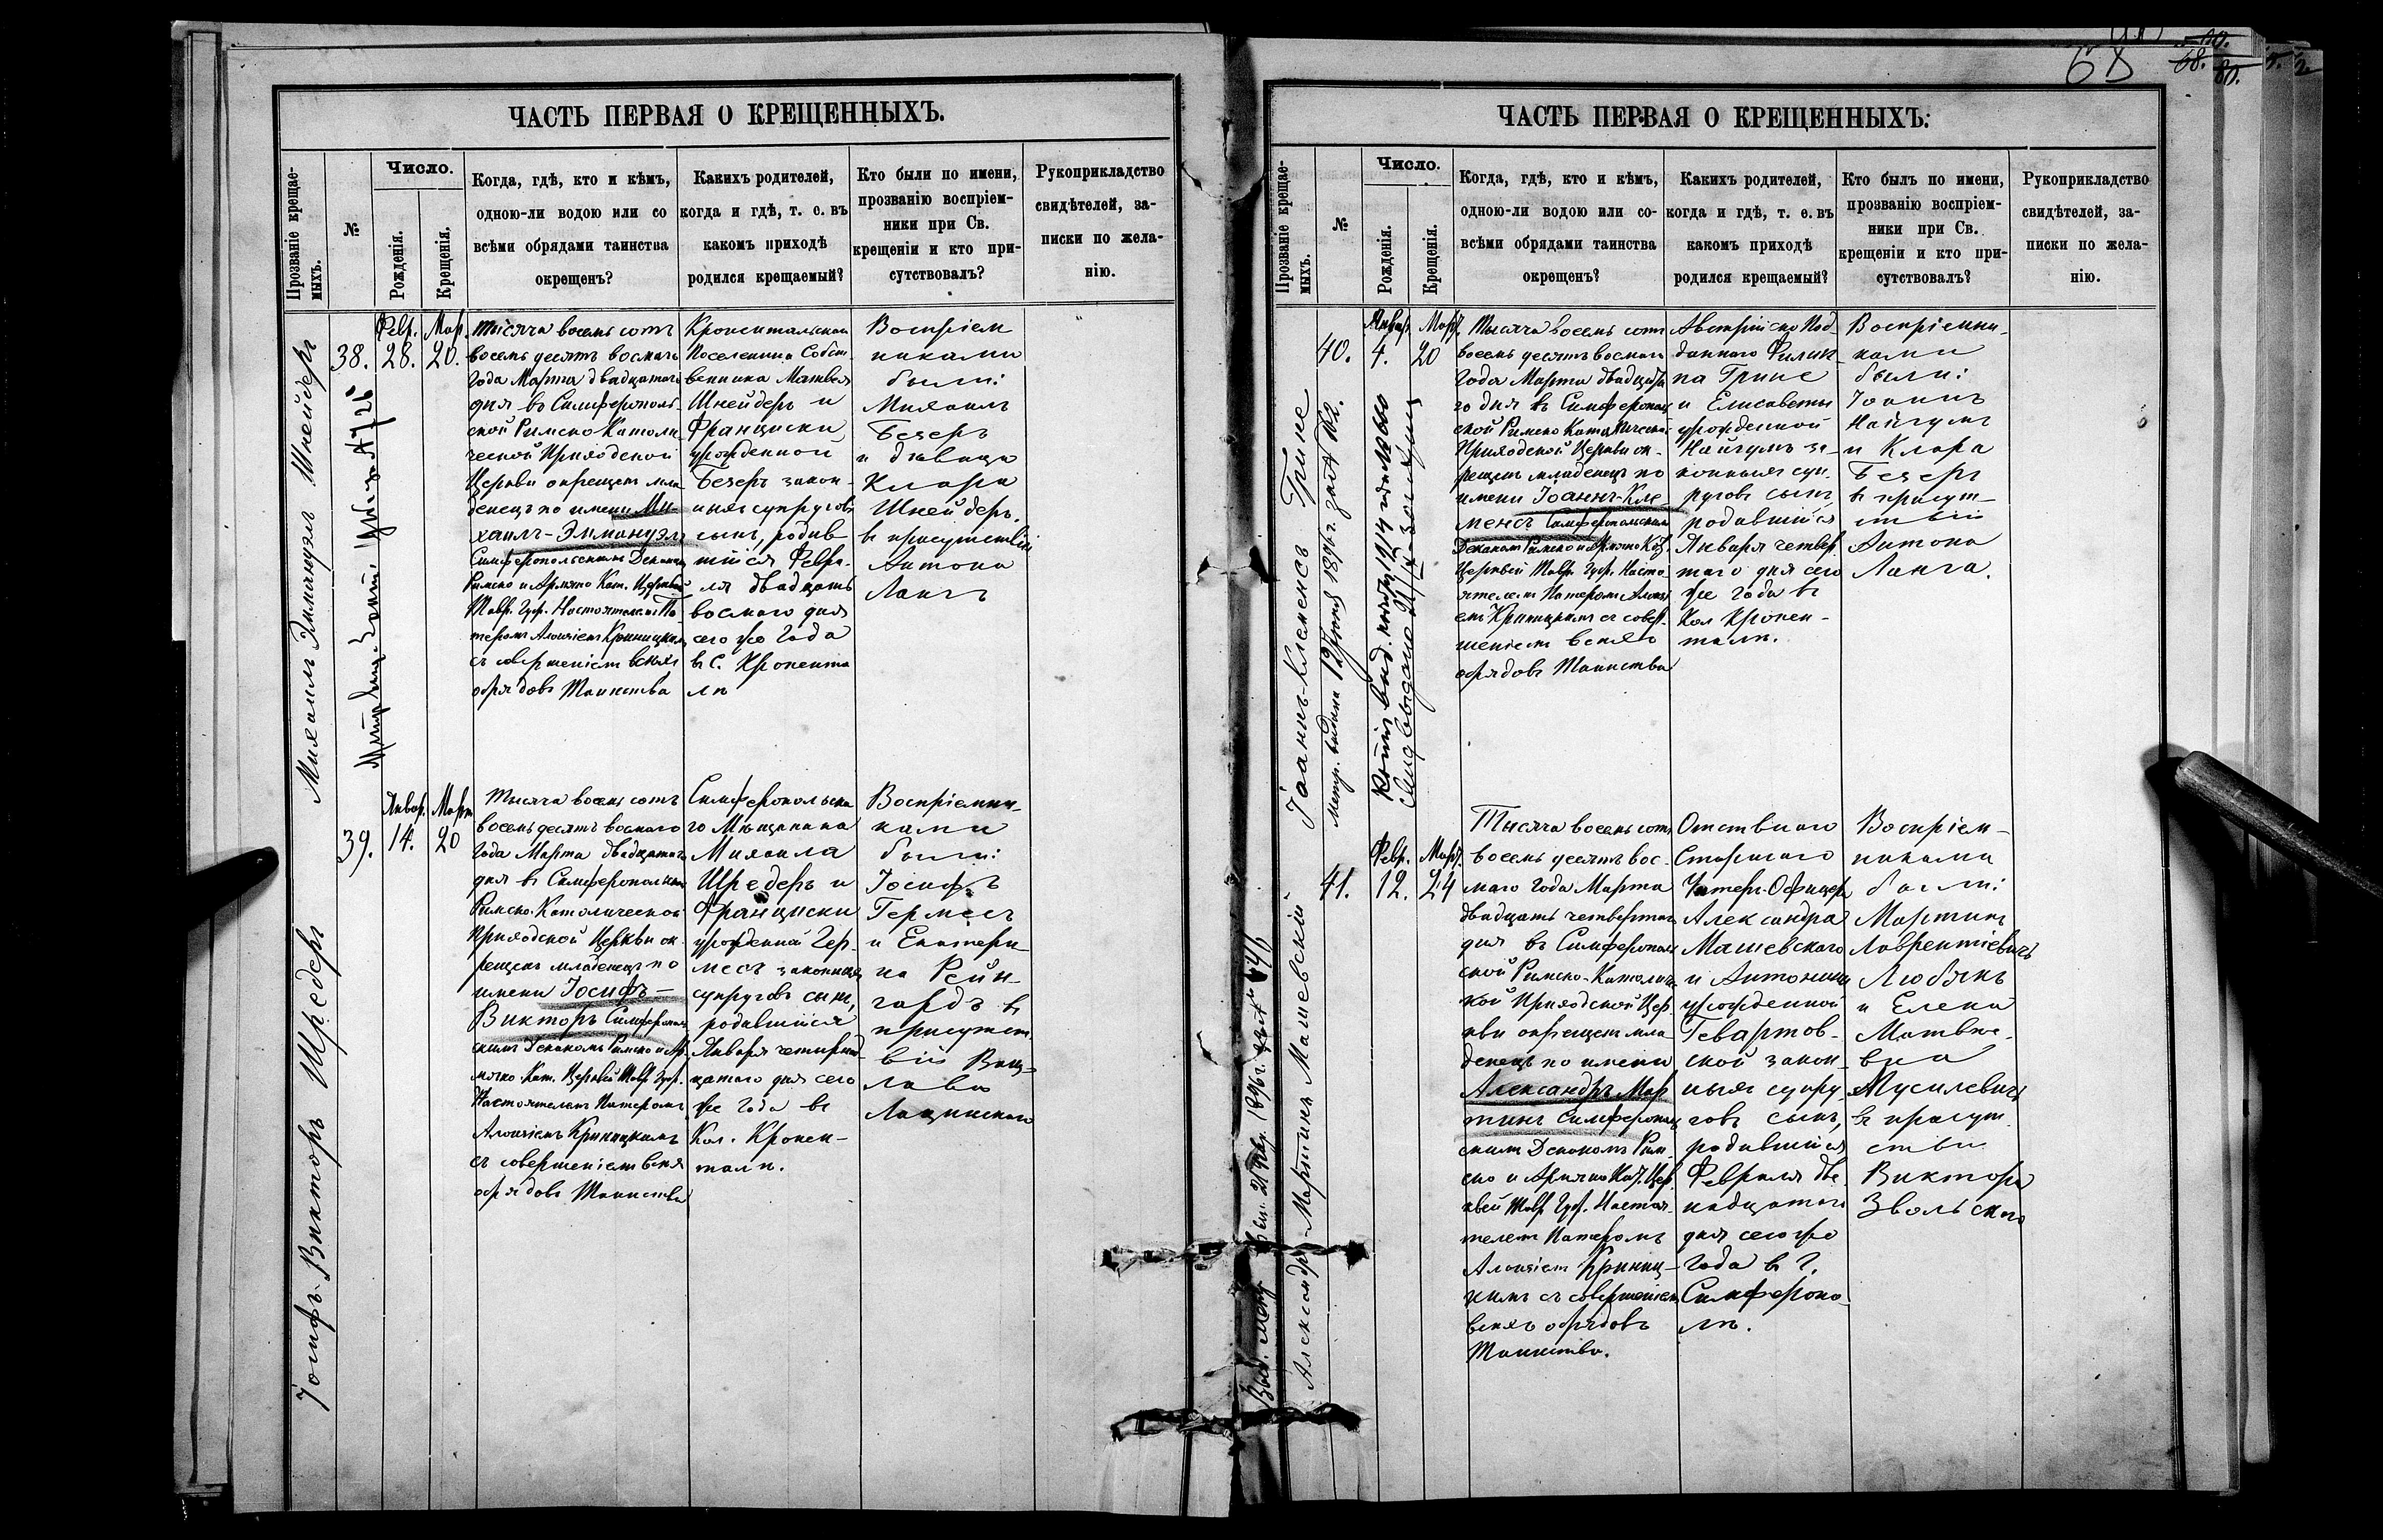 ЧАСТЬ ПЕРВАЯ О КРЕЩЕННЫХЪ.
Прозваніе крещае-
мыхъ.
№
Число.
Рожденія.
Крещенія.
Когда, гдѣ, кто и кѣмъ,
одною-ли водою или со
всѣми обрядами таинства
окрещенъ?
Какихъ родителей,
когда и гдѣ, т. е. въ
какомъ приходѣ
родился крещаемый?
Кто были по имени,
прозванію воспріем-
ники при Св.
крещеніи и кто при-
сутствовалъ?
Рукоприкладство
свидѣтелей, за-
писки по жела-
нію.
Михаилъ Эммануэлъ Шнейдеръ
38.
Февр.
28.
Мар.
20.
Тысяча восемь сотъ
восемь десятъ восмого
года Марта двадцатаго
дня въ Симферополь-
ской Римско Католи-
ческой Приходской
Церкви окрещенъ мла
денецъ по имени Ми-
хаилъ-Эммануэлъ
Симферопольскимъ Деканомъ
Римско и Армяно Кат. Церквей
Тавр. Губ. Настоятелемъ Па
теромъ Алоизіемъ Криницкимъ
съ совершеніемъ всѣхъ
обрядовъ Таинства
Кронентальскаго
Поселянина Собст-
венника Матвея
Шнейдеръ и
Франциски
урожденной
Бегеръ закон-
ныхъ супруговъ
сынъ, родив
шійся Февра-
ля двадцать
восмого дня
сего же года
въ с. Кронента
лѣ
Воспріем
никами
были:
Михаилъ
Бегеръ
и дѣвица
Клара
Шнейдеръ.
въ присутствіи
Антона
Лангъ
39.
Январ.
14.
Март.
20
Іосифъ-Викторъ Шредеръ
Тысяча восемь сотъ
восемь десятъ восмого
года Марта двадцатаго
дня въ Симферопольской
Римско-Католической
Приходской Церкви ок-
рещенъ младенецъ по
имени Іосифъ-
Викторъ Симферополь
скимъ Деканомъ Римско и Ар
мяно-Кат. Церквей Тавр. Губ.
Настоятелемъ Патеромъ
Алоизіемъ Криницкимъ
съ совершеніемъ всѣхъ
обрядовъ Таинства
Симферопольска
го Мѣщанина
Михаила
Шредеръ и
Франциски
урожденной Гер-
месъ законныхъ
супруговъ сынъ,
родившійся
Января четырнад-
цатаго дня сего
же года въ
Кол. Кронен-
талѣ.
Воспріемни-
ками
были:
Іосифъ
Гермесъ
и Екатери-
на Рейн-
гардъ въ
присутст
віи Вац-
лава
Лащинскаго
ЧАСТЬ ПЕРВАЯ О КРЕЩЕННЫХЪ:
68
Прозваніе крещае-
мыхъ.
№
Число.
Рожденія.
Крещенія.
Когда, гдѣ, кто и кѣмъ,
одною-ли водою или со-
всѣми обрядами таинства
окрещенъ?
Какихъ родителей,
когда и гдѣ, т. е. въ
какомъ приходѣ
родился крещаемый?
Кто былъ по имени,
прозванію воспріем-
ники при Св.
крещеніи и кто при-
сутствовалъ?
Рукоприкладство
свидѣтелей, за-
писки по жела-
нію.
Іоаннъ-Клеменсъ Грине
40.
Январ.
4.
Март.
20
Тысяча восемь сотъ
восемь десятъ восмого
года Марта двадцата
го дня въ Симферополь
ской Римско Католической
Приходской Церкви ок-
рещенъ младенецъ по
имени Іоаннъ-Кле-
менсъ Симферопольскимъ
Деканомъ Римско и Армяно Кат.
Церквей Тавр. Губ. Насто-
ятелемъ Патеромъ Алоизі
емъ Криницкимъ съ совер-
шеніемъ всѣхъ
обрядовъ Таинства
Австрійско Под-
даннаго Филип-
па Грине
и Елисаветы
урожденной
Найгумъ за-
конныхъ суп-
руговъ сынъ,
родившійся
Января четвер
таго дня сего
же года въ
Кол Кронен-
талѣ.
Воспріемни-
ками
были:
Іоаннъ
Найгумъ
и Клара
Бегеръ
въ присут-
ствіи
Антона
Ланга.
Александръ-Мартинъ Машевскій
41.
Февр.
12.
Март.
24
Тысяча восемь сотъ
восемь десятъ вос-
маго года Марта
двадцать четвертаго
дня въ Симферополь
ской Римско-Католичес
кой Приходской Цер-
кви окрещенъ мла
денецъ по имени
Александръ Мар
тинъ Симферополь
скимъ Деканомъ Рим-
ско и Армяно Кат. Цер-
квей Тавр. Губ. Настоя-
телемъ Патеромъ
Алоизіемъ Криниц-
кимъ съ совершеніемъ
всѣхъ обрядовъ
Таинства.
Отставнаго
Старшаго
Унтеръ-Офицера
Александра
Машевскаго
и Антонины
урожденной
Гевартов-
ской закон-
ныхъ супру-
говъ сынъ,
родившійся
Февраля две
надцатаго
дня сего же
года въ г.
Симферопо-
лѣ.
Воспріем-
никами
были:
Мартинъ
Лаврентіевичъ
Любякъ
и Елена
Матвѣе-
вна
Мусилевичъ
въ присут
ствіи
Виктора
Звольскаго